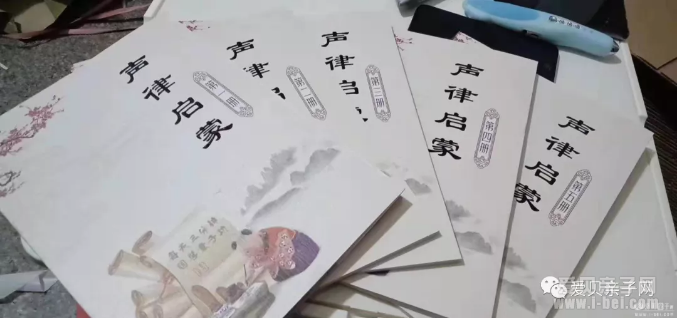 声律启蒙
第一册
声律
第二册
声律启
第三册
声律启蒙
第四册
声律启蒙
第五册
爱贝亲子网